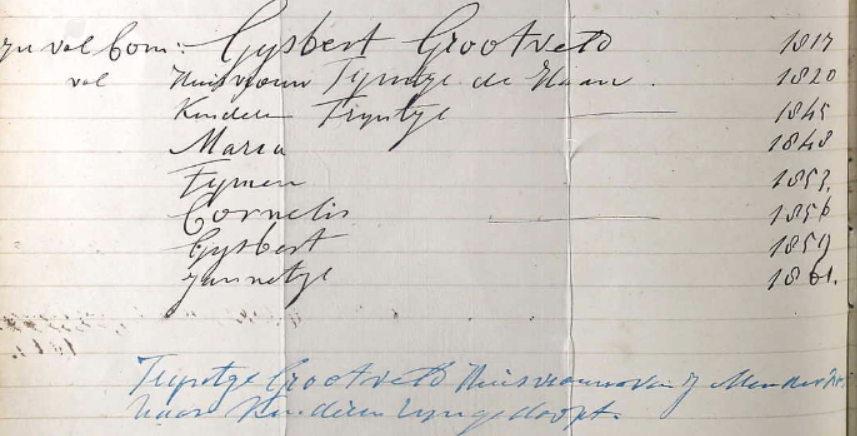 zyn vol Com: Gysbert Grootveld 1817
vol Huisvrouw Tymtge de Haan. 1820
Kinderen Tryntge 1845
Maria 1848
Tymen 1853.
Cornelis 1856
Gysbert 1859
Jannetge 1861.
Tryntge Grootveld Huisvrouw van J
haar Kinderen zyn gedoopt.